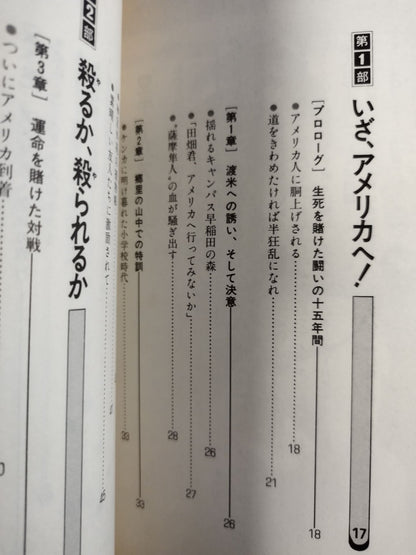 第1部 いざ、アメリカへ! 17
[プロローグ] 生死を賭けた闘いの十五年間 18
●アメリカ人に胴上げされる 18
●道をきわめたければ半狂乱になれ 21
[第1章] 渡米への誘い、そして決意 26
●揺れるキャンパス早稲田の森 26
●「田畑君、アメリカへ行ってみないか」 27
●“薩摩隼人”の血が騒ぎ出す 28
[第2章] 郷里の山中での特訓 33
●ケンカに明け暮れた小学校時代 33
2部 殺るか、殺られるか
や や
[第3章] 運命を賭けた対戦
●ついにアメリカ到着